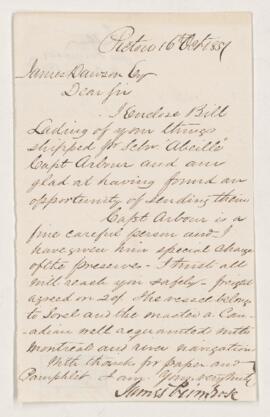 Pictou 16th Oct 1857
James Dawson Esq
Dear Sir
I Enclose Bill
Lading of your things
shipped pr Schr "Alcielle"
Capt Arbour and am
glad at having found an
opportunity of sending them
Capt Arbour is a
fine careful person and I
have given him special charge
of the Preserves - I trust all
will reach you safely - freight
agreed on 20/. The vessel belongs
to Sorel and the master a Can-
adian well acquainted with
Montreal and river navigation
With thanks for paper and
Pamphlet I am Yours very truly
James Primrose